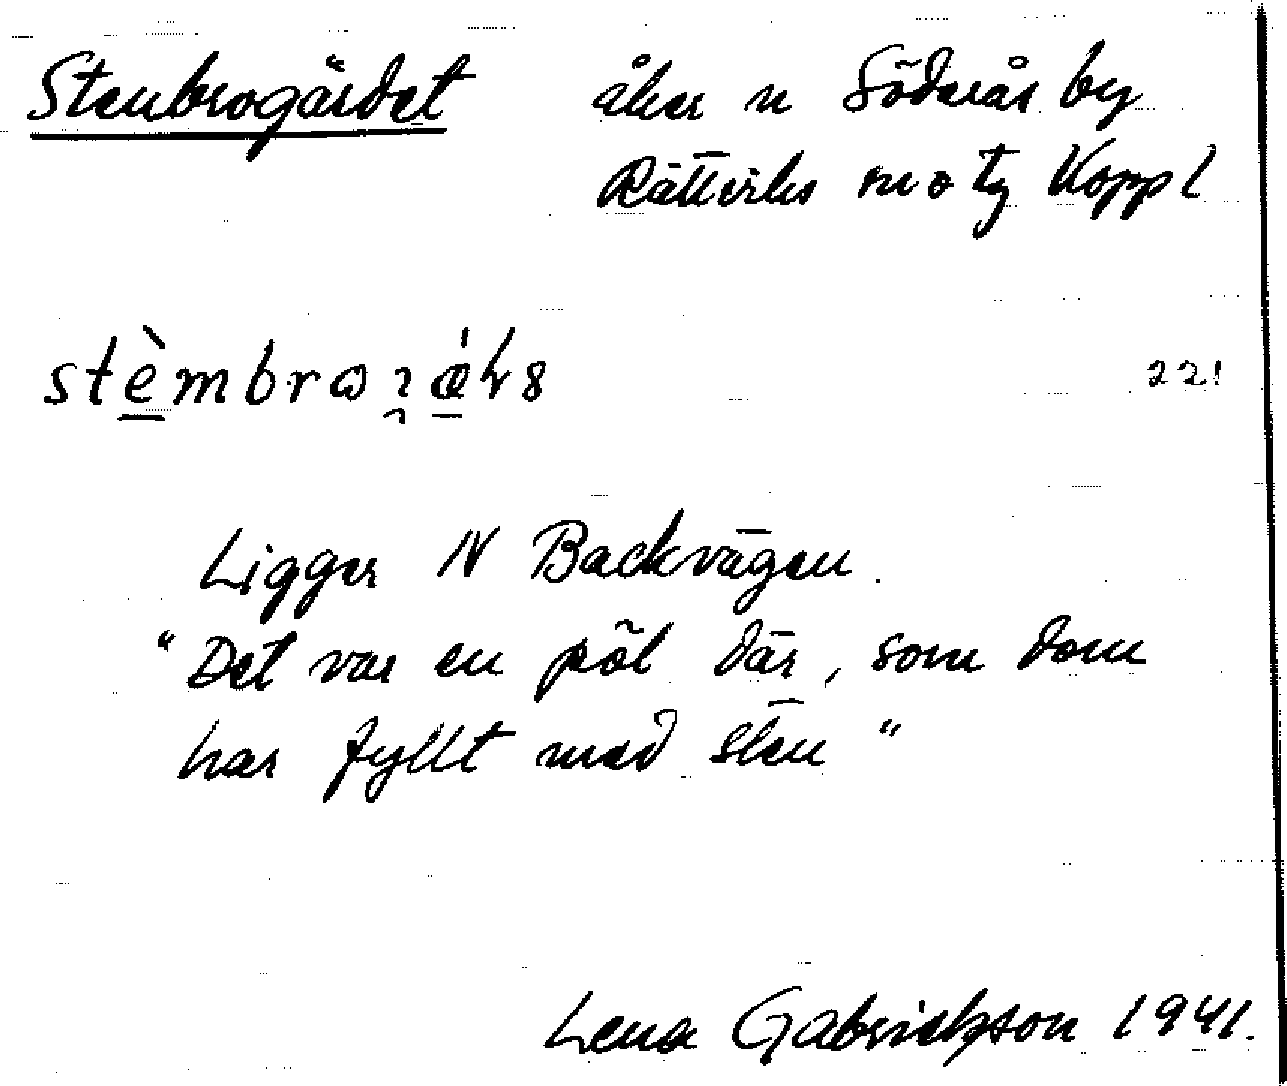 Stenbrogärdet åker n Söderås by
Rättviks sn o tg Koppl
221
Ligger N Backvägen.
"Det var en pöl där, som dom
har fyllt med sten"
Lena Gabrielsson 1941.